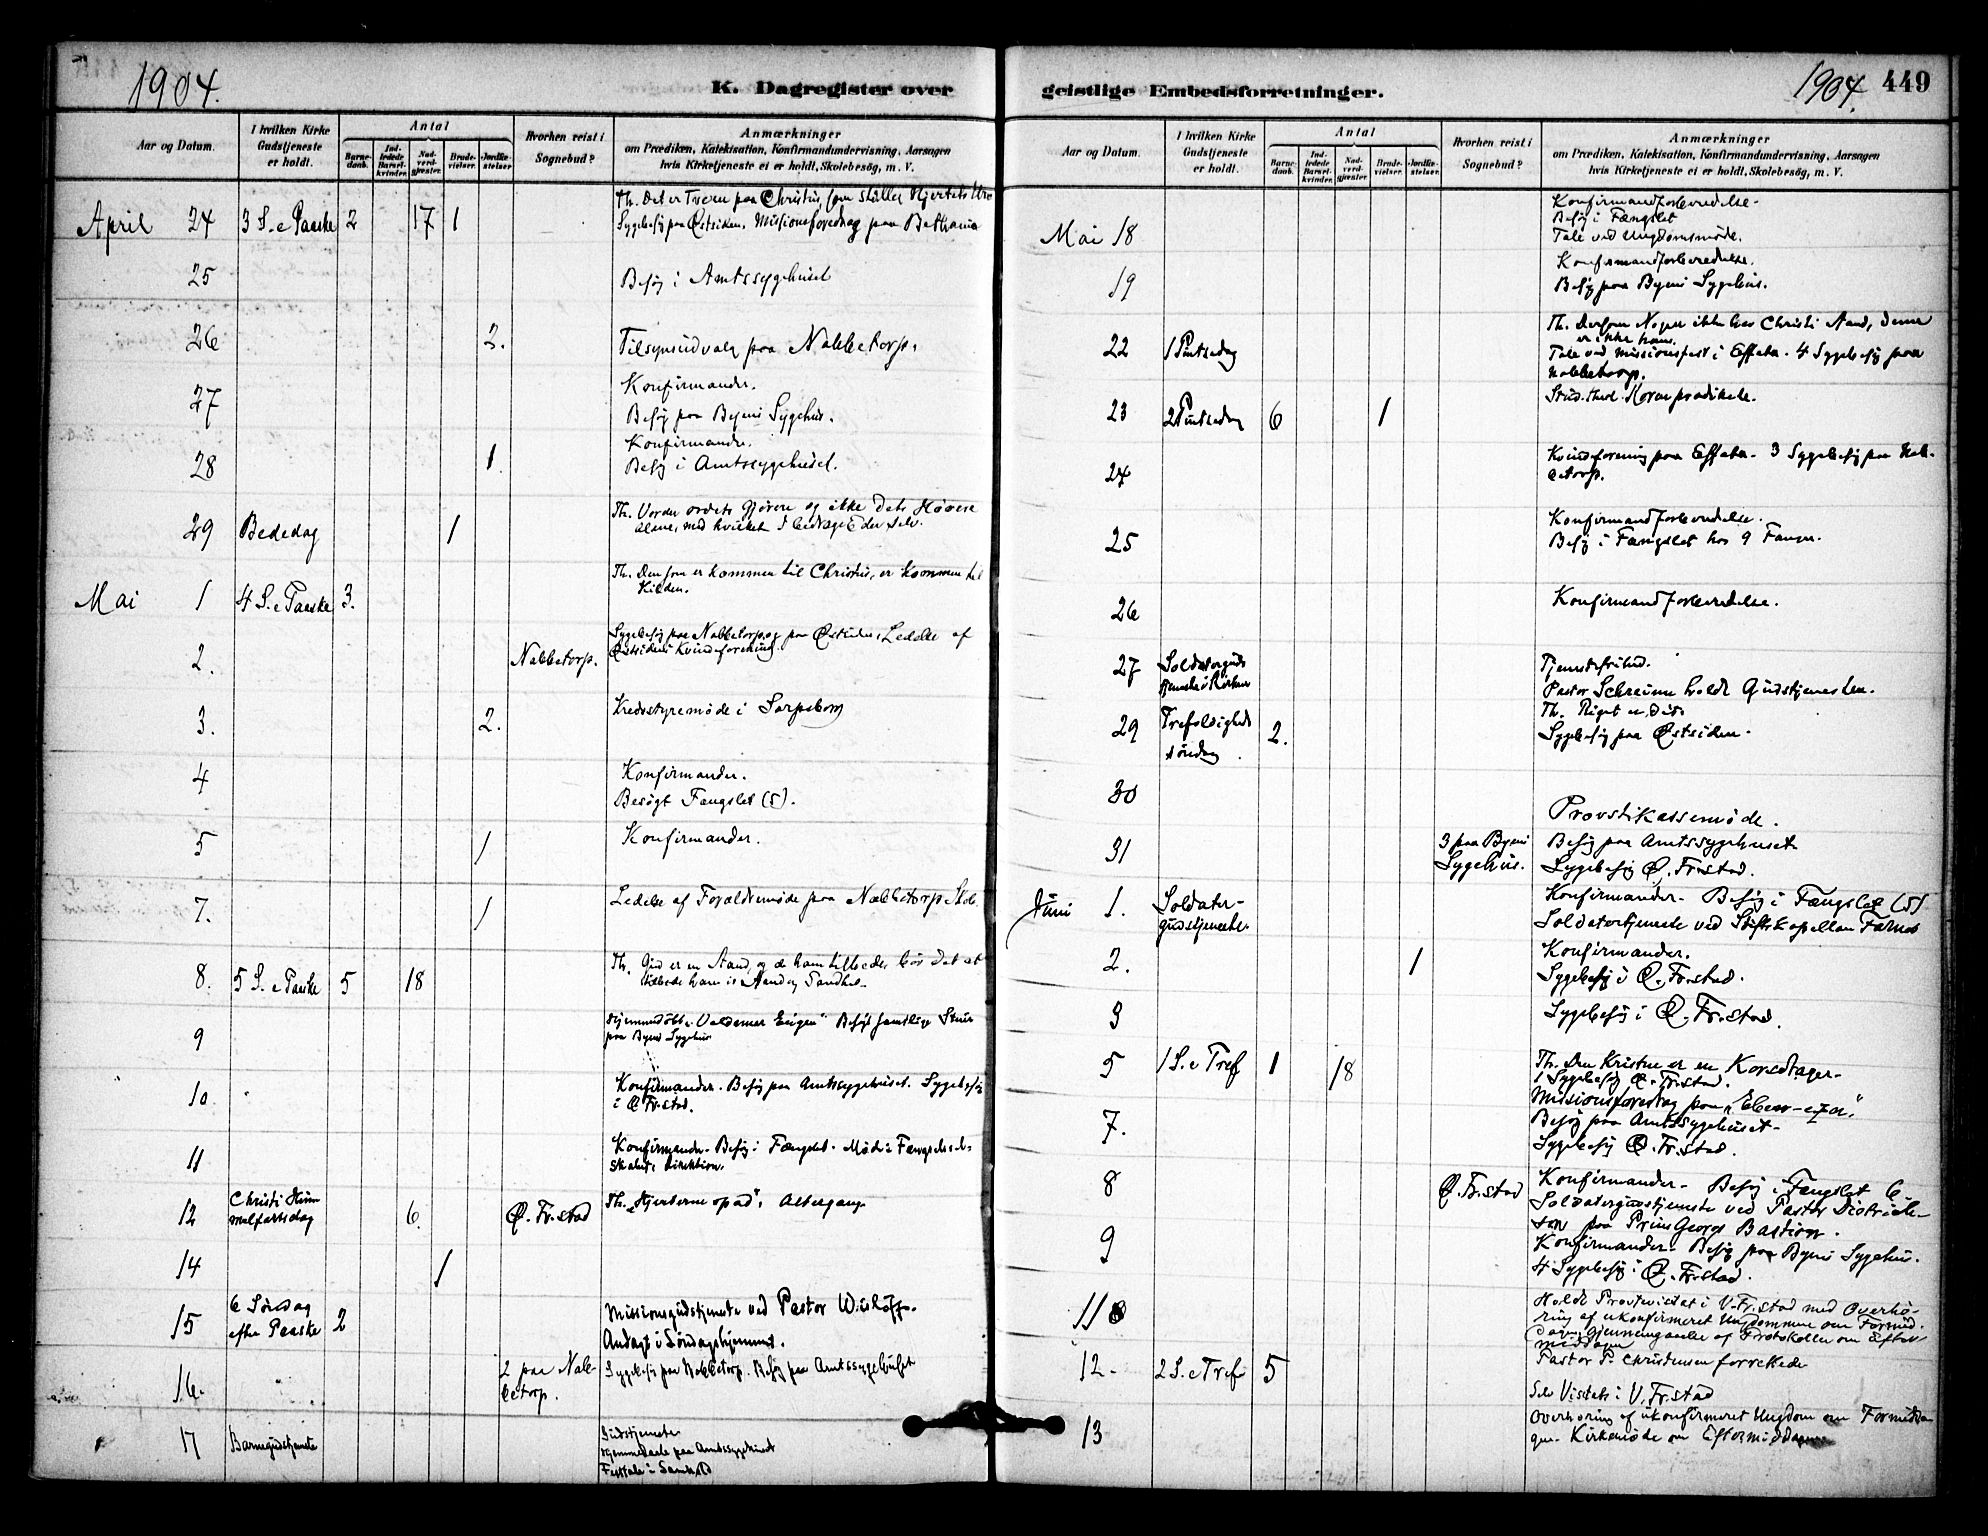 1904.
K. Dagregister over
Aar og Datum.
I hvilken Kirke
Gudstjeneste
er holdt.
Antal
Barne-
daab.
Ind-
ledede
Barsel-
kvinder.
Nad-
verd-
gjæster.
Brude-
vielser.
Jordfæ-
stelser.
Hvorhen reist i
Sognebud?
Anmærkninger
om Prædiken, Katekisation, Konfirmandundervisning, Aarsagen
hvis Kirketjeneste ei er holdt, Skolebesøg, m. V.
Th. Det er Troen paa Christus, som stiller Hjertets Uro
April 24 3 S. e Paaske 2 17 1 Sygebesøg paa Østsiden. Missionsforedrag paa Bethania
25 Besøg i Amtssygehuset
26 2. Tilsynsudvalg paa Nabbetorp.
27 Konfirmander.
Besøg paa Byens Sygehus.
28 1. Konfirmander.
Besøg i Amtssygehuset.
Th. Vorder ordets Gjørere og ikke dets Hørere
29 Bededag 1 alene, med hvilket I bedrage Eder selv.
Th. Den som er kommen til Christus, er kommen til
Mai 1 4 S. e Paaske 3. Kilden.
Sygebesøg paa Nabbetorp og paa Østsiden. Ledelse af
2. Nabbetorp. Østsidens Kvindeforening.
3. 2. Kredsstyremøde i Sarpsborg
4 Konfirmander.
Besøgt Fængslet (5).
5 1 Konfirmander.
7. 1 Ledelse af Forældremøde paa Nabbetorp Skole.
Th. Gud er en Aand, og de ham tilbeder, bør det at
8. 5 S. e Paaske 5 18 tilbede ham i Aand og Sandhed.
9 Besøgt samtlige Stuer
paa Byens Sygehus
10. Konfirmander. Besøg paa Amtssygehuset. Sygebesøg
i Ø. Fr.stad.
11 Konfirmander. Besøg i Fængslet. Møde i Fængselsel-
skabets Direktion.
12 Christi Him
melfartsdag 6. Ø. Fr.stad Th. "Hjerterne opad". Altergang.
14 1
15 6 Søndag
efter Paaske 2 Missionsgudstjeneste ved Pastor Wisløff.
Andagt i Søndagshjemmet.
16. 2 paa Nab-
betorp. Sygebesøg paa Nabbetorp. Besøg paa Amtssygehuset
17 Barnegudstjeneste Gudstjeneste
paa Amtssygehuset
Festtale i
1904. 449
geistlige Embedsforretninger.
Aar og Datum.
I hvilken Kirke
Gudstjeneste
er holdt.
Antal
Barne-
daab.
Ind-
ledede
Barsel-
kvinder.
Nad-
verd-
gjæster.
Brude-
vielser.
Jordfæ-
stelser.
Hvorhen reist i
Sognebud?
Anmærkninger
om Prædiken, Katekisation, Konfirmandundervisning, Aarsagen
hvis Kirketjeneste ei er holdt, Skolebesøg, m. V.
Konfirmandforberedelse.
Mai 18 Besøg i Fængslet
Tale ved Ungdomsmøde.
19 Konfirmandforberedelse.
Besøg paa Byens Sygehus.
Th. Dersom Nogen ikke har Christi Aand, denne
er ikke hans.
22 1 Pintsedag Tale ved Missionsfest i Effata. 4 Sygebesøg paa
Nabbetorp.
23 2 Pintsedag 6 1 Stud. theol. Hovne prædikede.
24 Kvindeforening paa Effata. 3 Sygebesøg paa Nab-
betorp.
25 Konfirmandforberedelse.
Besøg i Fængslet hos 9 Fanger.
26 Konfirmandforberedelse.
27 Soldaterguds
tjeneste i Kirken Tjenestefrihed.
Pastor Schreiner holdt Gudstjenesten.
29 Trefoldigheds
søndag 2. Th. Riget er Dit.
Sygebesøg paa Østsiden.
30 Provstikassemøde.
31 3 paa Byens
Sygehus. Besøg paa Amtssygehuset
Sygebesøg Ø. Fr.stad.
Juni 1. Soldater-
gudstjeneste. Konfirmander. Besøg i Fængslet (5)
Soldatertjeneste ved Stiftskapellan
2. 1 Konfirmander.
Sygebesøg i Ø. Fr.stad.
3 Sygebesøg i Ø. Fr.stad.
5 1 S. e Tref 1 18 Th. Den Kristne er en Korsdrager.
1 Sygebesøg Ø. Fr.stad.
Missionsforedrag paa "Eben-ezer."
7. Besøg paa Amtssygehuset
Sygebesøg Ø. Fr.stad.
8 Ø. Fr.stad Konfirmander. Besøg i Fængslet 6.
Soldatergudstjeneste ved Pastor Didrich-
sen paa Prins Georgs Bastion.
9 Konfirmander. Besøg paa Byens Sygehus.
4 Sygebesøg i Ø. Fr.stad.
11 Holdt Provstevisitats i V. Fr.stad med Overhø-
ring af ukonfirmeret Ungdommen om Formid-
dagen, Gjennemgaaelse af Protokoller om Efter-
middagen
12. 2 S. e Tref 5 Pastor P. Christensen forrettede
Selv Visitats i V. Fr.stad
13 Overhøring af ukonfirmeret Ungdom om Formidda-
gen. Kirkemøde om Eftermiddagen